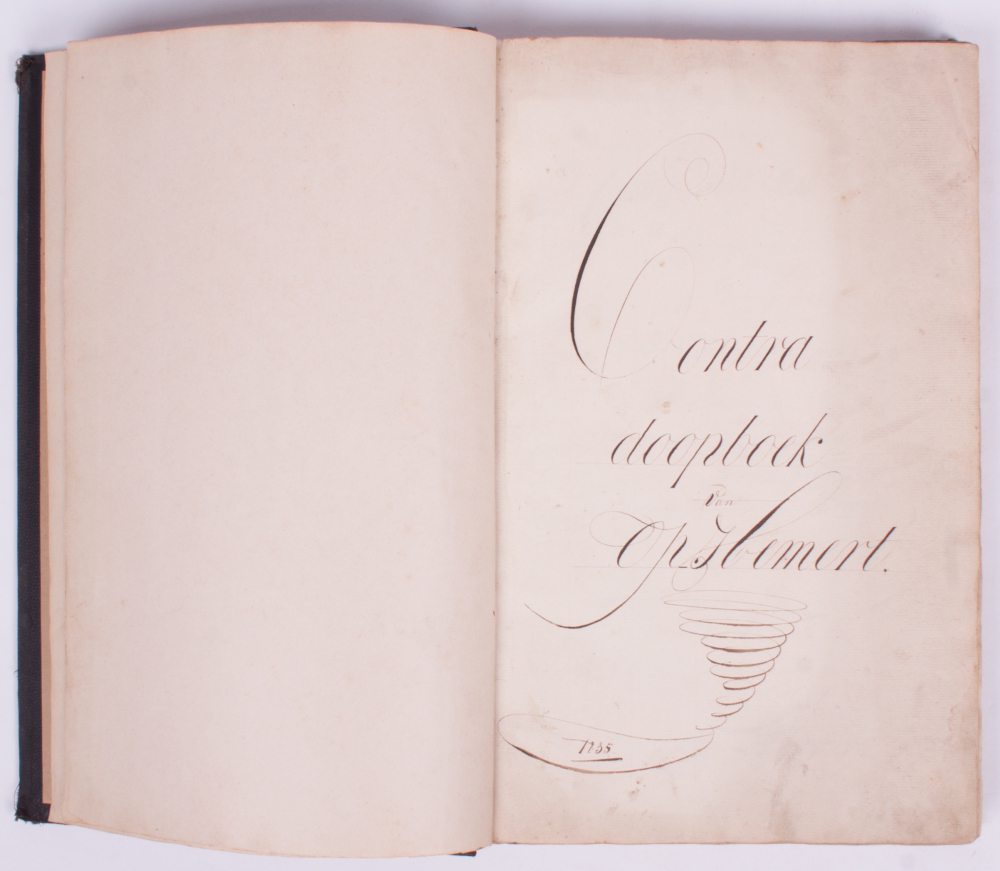 Contra
doopboek
van
Op IJhemert.
1788